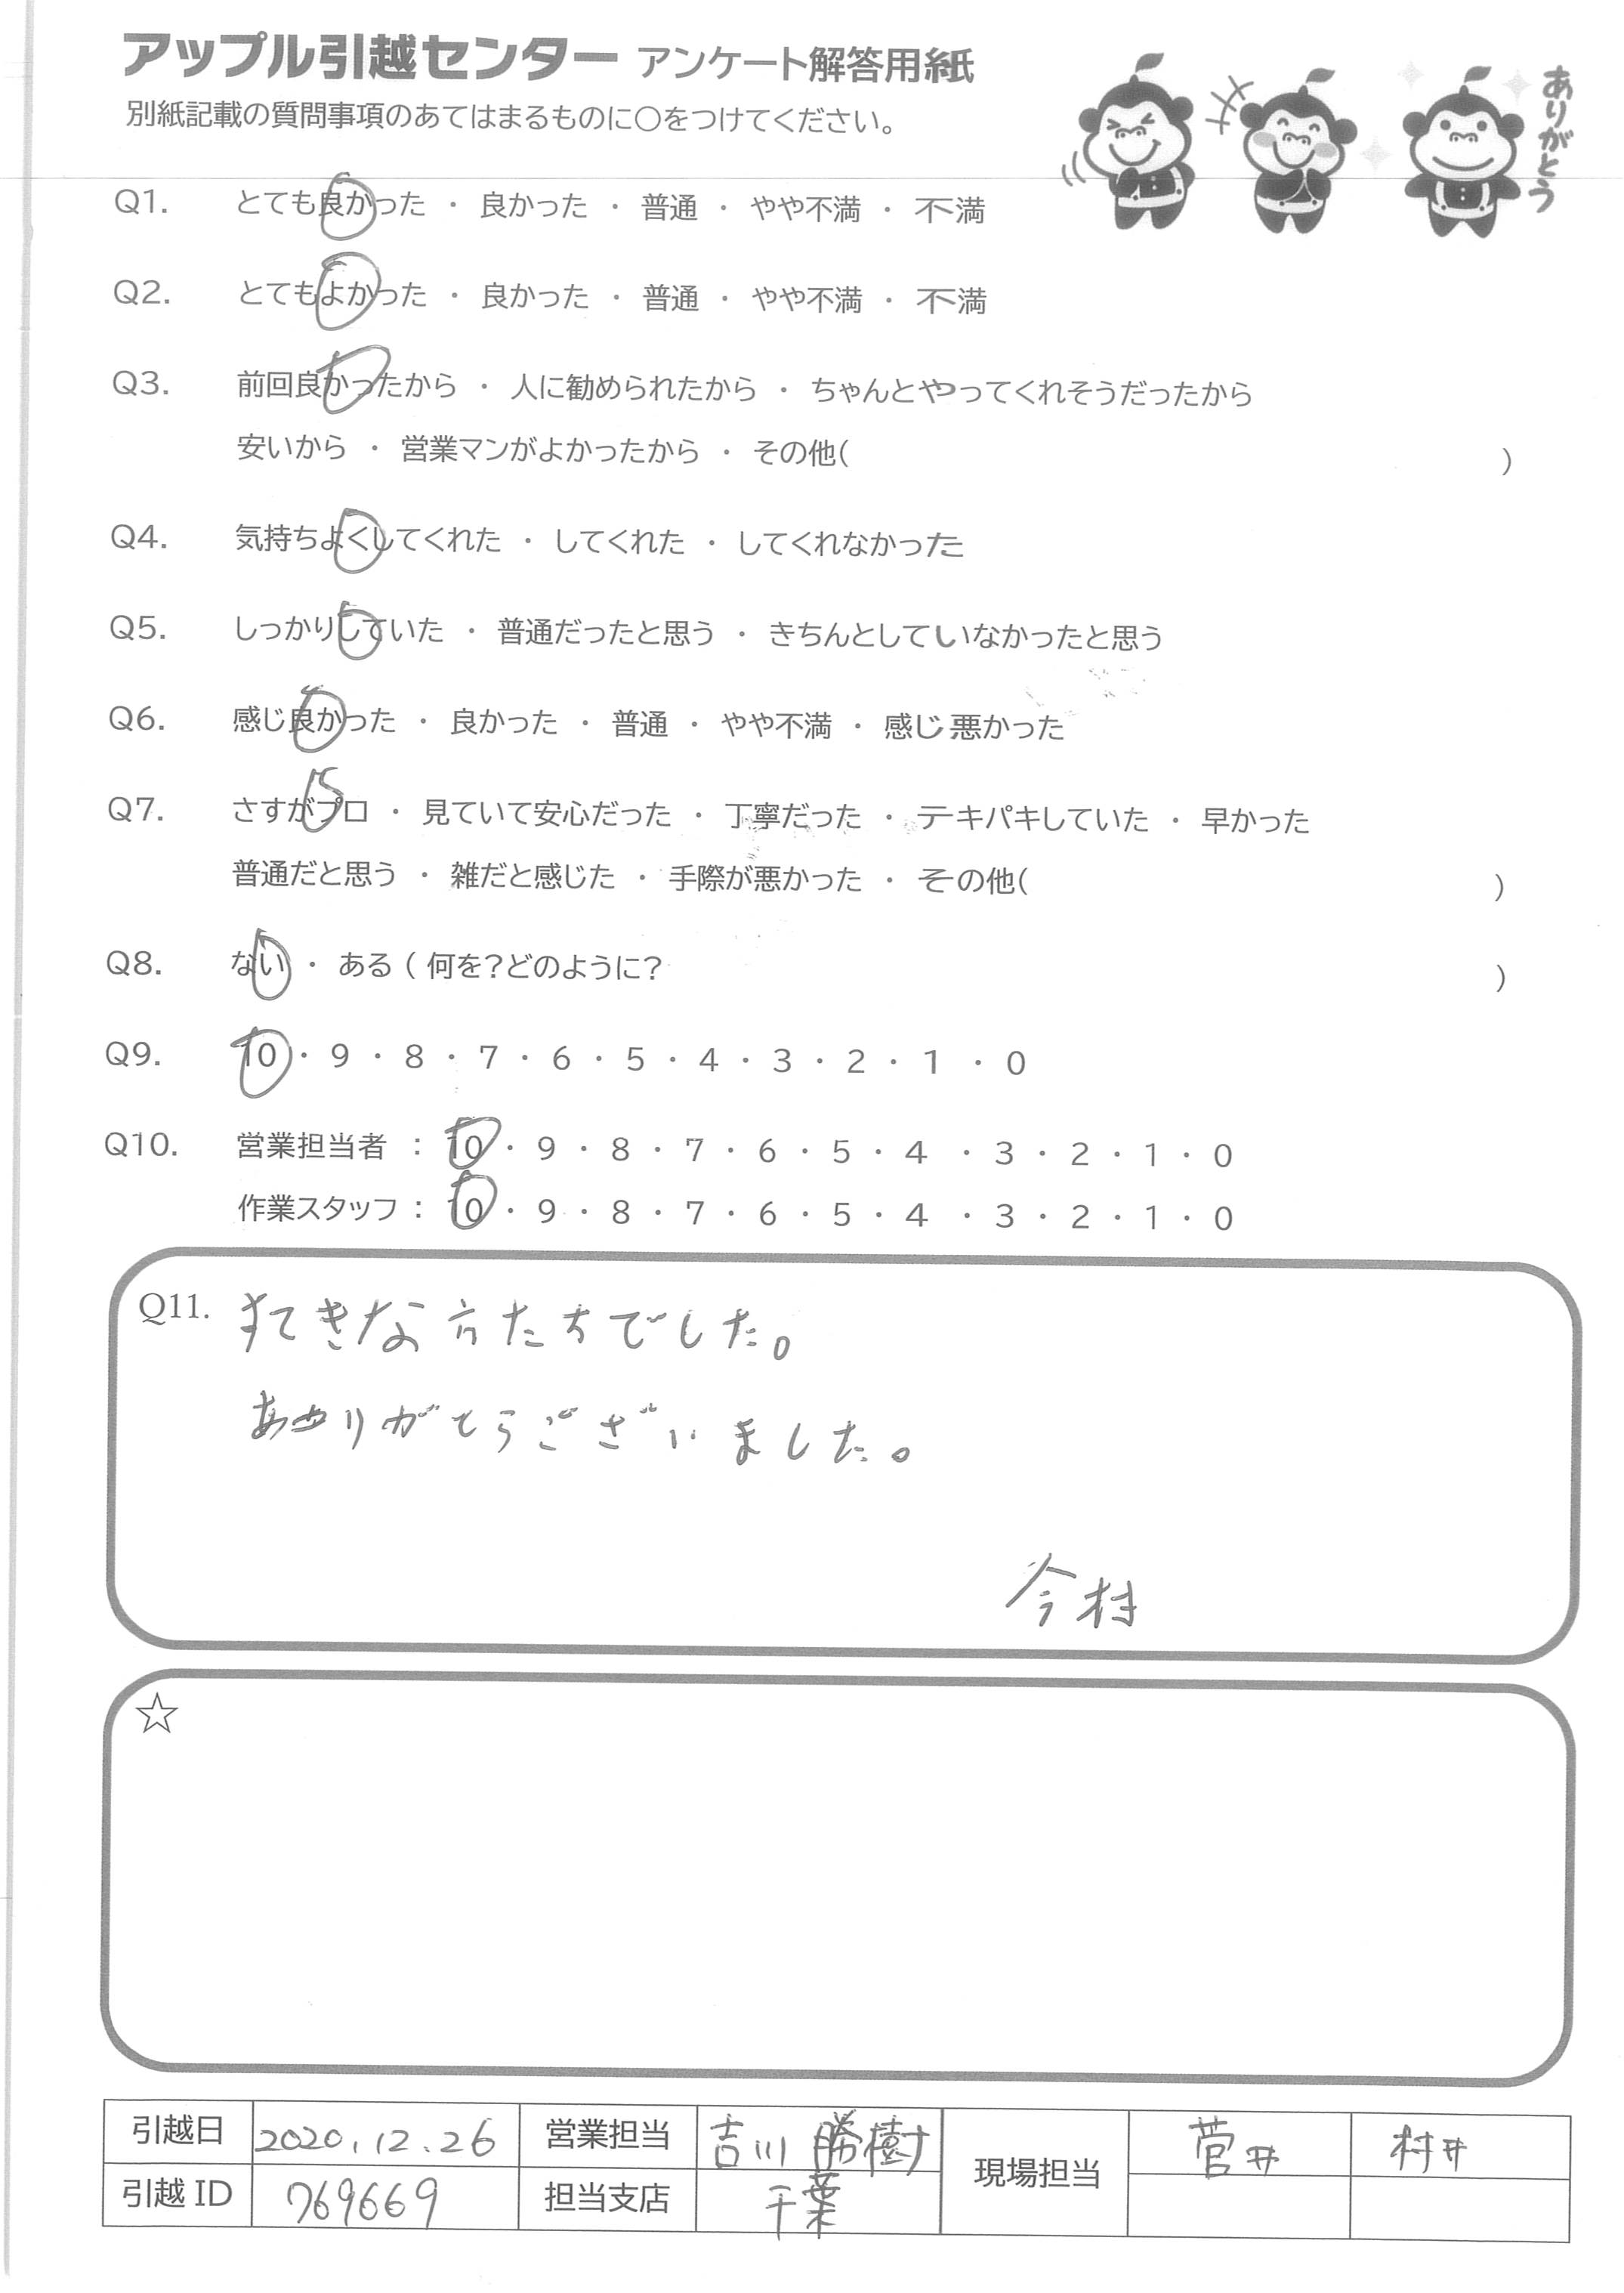 アップル引越センター アンケート解答用紙
別紙記載の質問事項のあてはまるものに○をつけてください。
ありがとう
Q1. とても良かった ・ 良かった ・ 普通 ・ やや不満 ・ 不満
Q2. とてもよかった ・ 良かった ・ 普通 ・ やや不満 ・ 不満
Q3. 前回良かったから ・ 人に勧められたから ・ ちゃんとやってくれそうだったから
安いから ・ 営業マンがよかったから ・ その他( )
Q4. 気持ちよくしてくれた ・ してくれた ・ してくれなかった
Q5. しっかりしていた ・ 普通だったと思う ・ きちんとしていなかったと思う
Q6. 感じ良かった ・ 良かった ・ 普通 ・ やや不満 ・ 感じ悪かった
Q7. さすがプロ ・ 見ていて安心だった ・ 丁寧だった ・ テキパキしていた ・ 早かった
普通だと思う ・ 雑だと感じた ・ 手際が悪かった ・ その他( )
Q8. ない ・ ある ( 何を?どのように? )
Q9. 10 ・ 9 ・ 8 ・ 7 ・ 6 ・ 5 ・ 4 ・ 3 ・ 2 ・ 1 ・ 0
Q10. 営業担当者 : 10 ・ 9 ・ 8 ・ 7 ・ 6 ・ 5 ・ 4 ・ 3 ・ 2 ・ 1 ・ 0
作業スタッフ : 10 ・ 9 ・ 8 ・ 7 ・ 6 ・ 5 ・ 4 ・ 3 ・ 2 ・ 1 ・ 0
Q11. すてきな方たちでした。
ありがとうございました。
今村
☆
引越日 2020.12.26 営業担当 吉川 勝樹 現場担当 菅井 村井
引越 ID 769669 担当支店 千葉